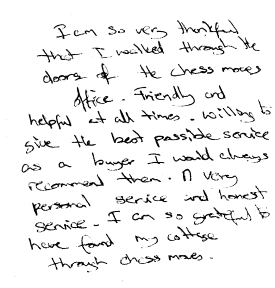 I am so very thankful
that I walked through the
doors of the chess moves
office. Friendly and
helpful at all times. willing to
give the best possible service
as a buyer I would always
recommend them. A very
personal service and honest
service. I am so grateful to
have found my cottage
through chess moves.